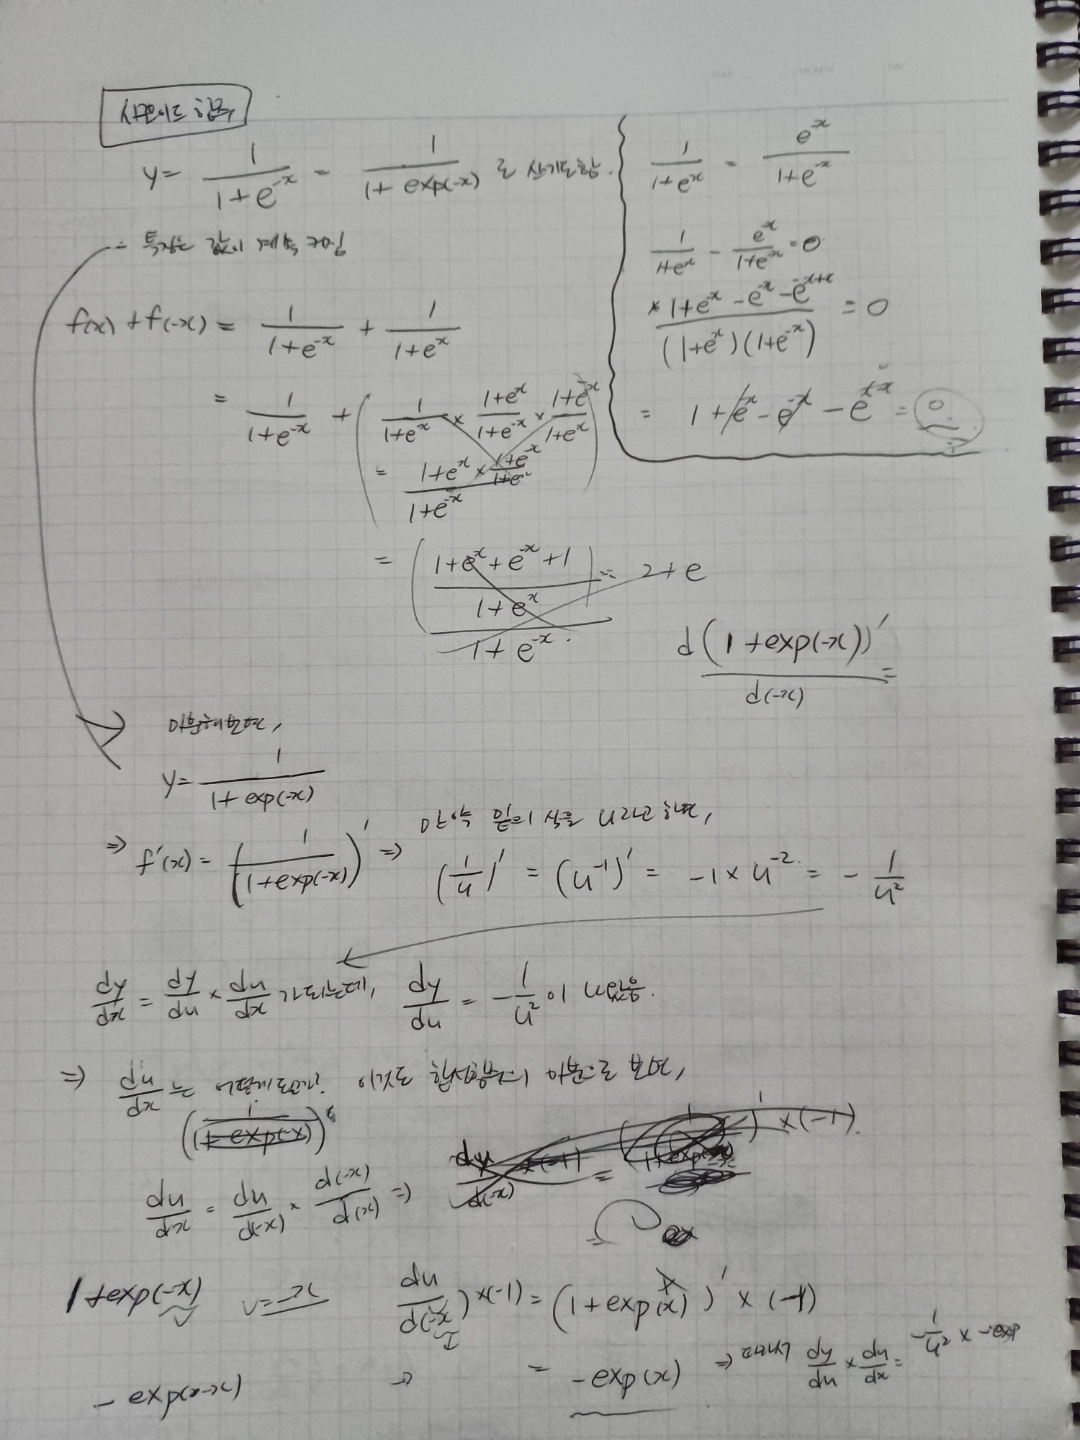 시그모이드 함수
y = 1/(1+e^-x) = 1/(1+exp(-x)) 로 쓰기도함.
특징은 값이 계속
f(x) + f(-x) = 1/(1+e^-x) + 1/(1+e^x)
= 1/(1+e^-x) + ( 1/(1+e^x) × (1+e^x)/(1+e^-x) × (1+e^-x)/(1+e^x) )
= (1+e^x × )/(1+e^-x)
= ( (1+e^x+e^-x+1)/(1+e^x) )/(1+e^-x) = 2+e
1/(1+e^x) = e^-x/(1+e^-x)
1/(1+e^x) - e^-x/(1+e^-x) = 0
(1+e^-x - e^-x - e^-x+x)/((1+e^x)(1+e^-x)) = 0
= 1+e^-x - e^-x - e^x-x = 0
d(1+exp(-x))'/d(-x) =
미분해보면,
y = 1/(1+exp(-x))
⇒ f'(x) = (1/(1+exp(-x)))' ⇒ 만약 밑의 식을 u라고 하면,
(1/u)' = (u^-1)' = -1 × u^-2 = - 1/u²
dy/dx = dy/du × du/dx 가 되는데, dy/du = - 1/u² 이 나왔음.
⇒ du/dx 는 어떻게 되는가? 이것도 합성함수의 미분으로 보면,
du/dx = du/d(-x) × d(-x)/d(x) ⇒
1+exp(-x) v=-x
du/d(-x) ×(-1) = (1+exp(x))' × (-1)
- exp(-x)
⇒ = -exp(x) ⇒ 따라서 dy/du × du/dx = -1/u² × -exp